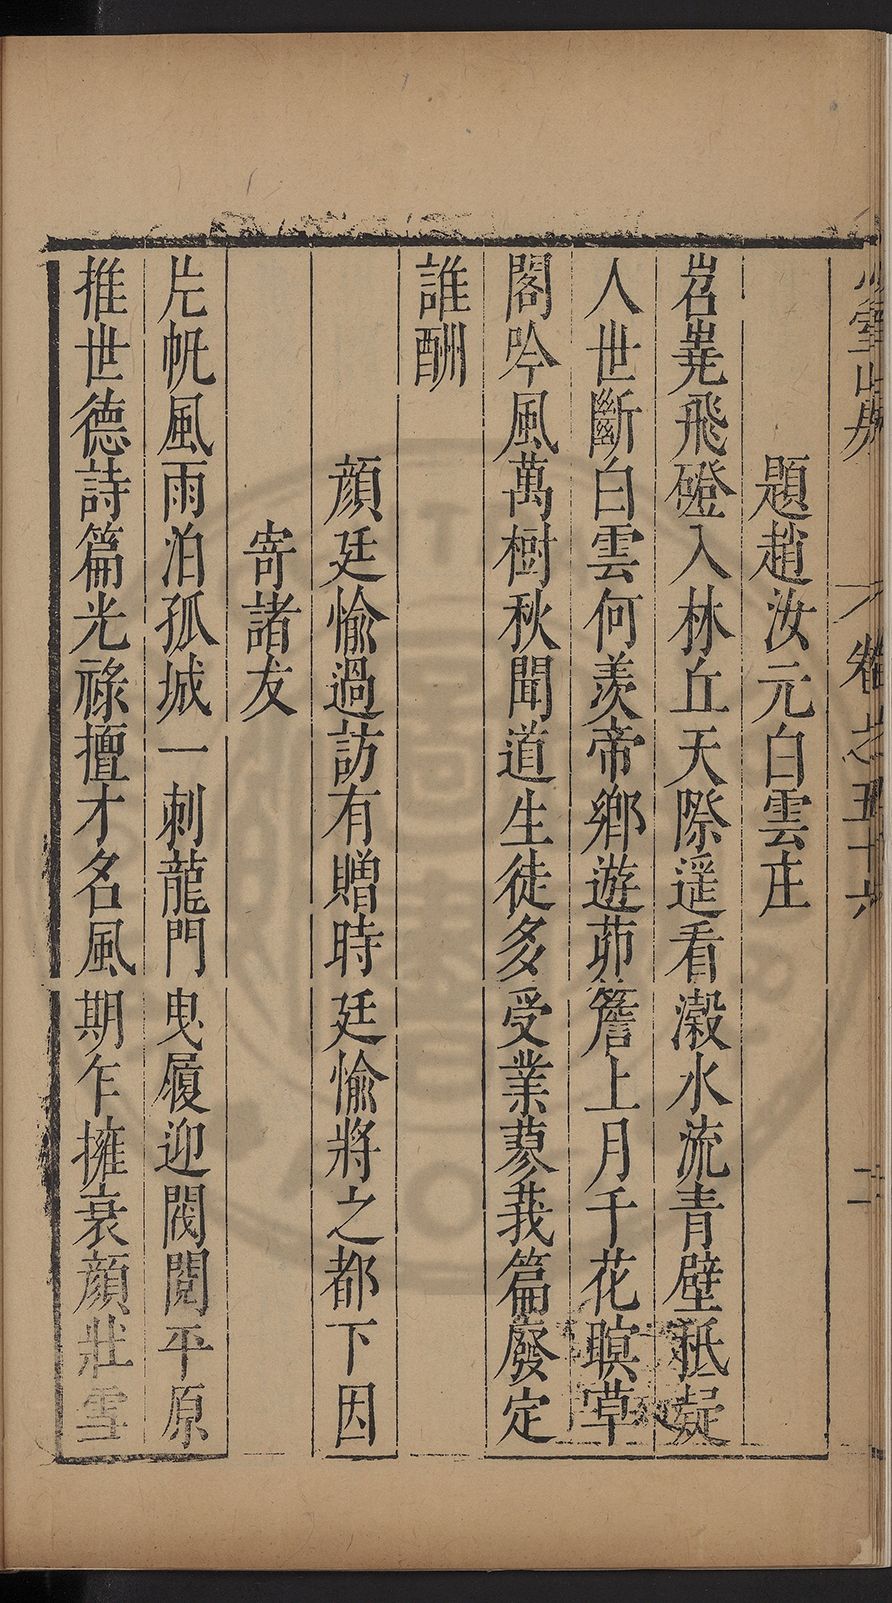 卷之五十六
二
題趙汝元白雲庄
岧嶤飛磴入林丘天際遥看瀫水流青壁秪疑
人世斷白雲何羨帝鄉遊茆簷上月千花瞑草
閣吟風萬樹秋聞道生徒多受業蓼莪篇廢定
誰酬
顔廷愉過訪有贈時廷愉將之都下因
寄諸友
片帆風雨泊孤城一刺龍門曳履迎閥閱平原
推世德詩篇光祿擅才名風期乍擁衰顔壯雪